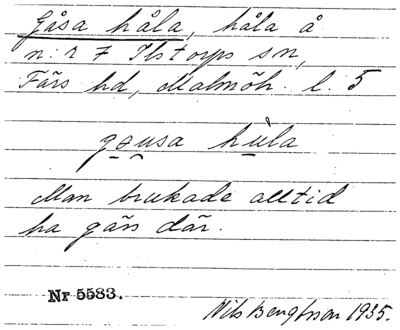 Gåsa håla, håla å
n:r 7 Ilstorps sn,
Färs hd, Malmöh. l. 5
gəusa hùla
Man brukade alltid
ha gäss där.
Nr 5583.
Nils Bengtsson 1935.